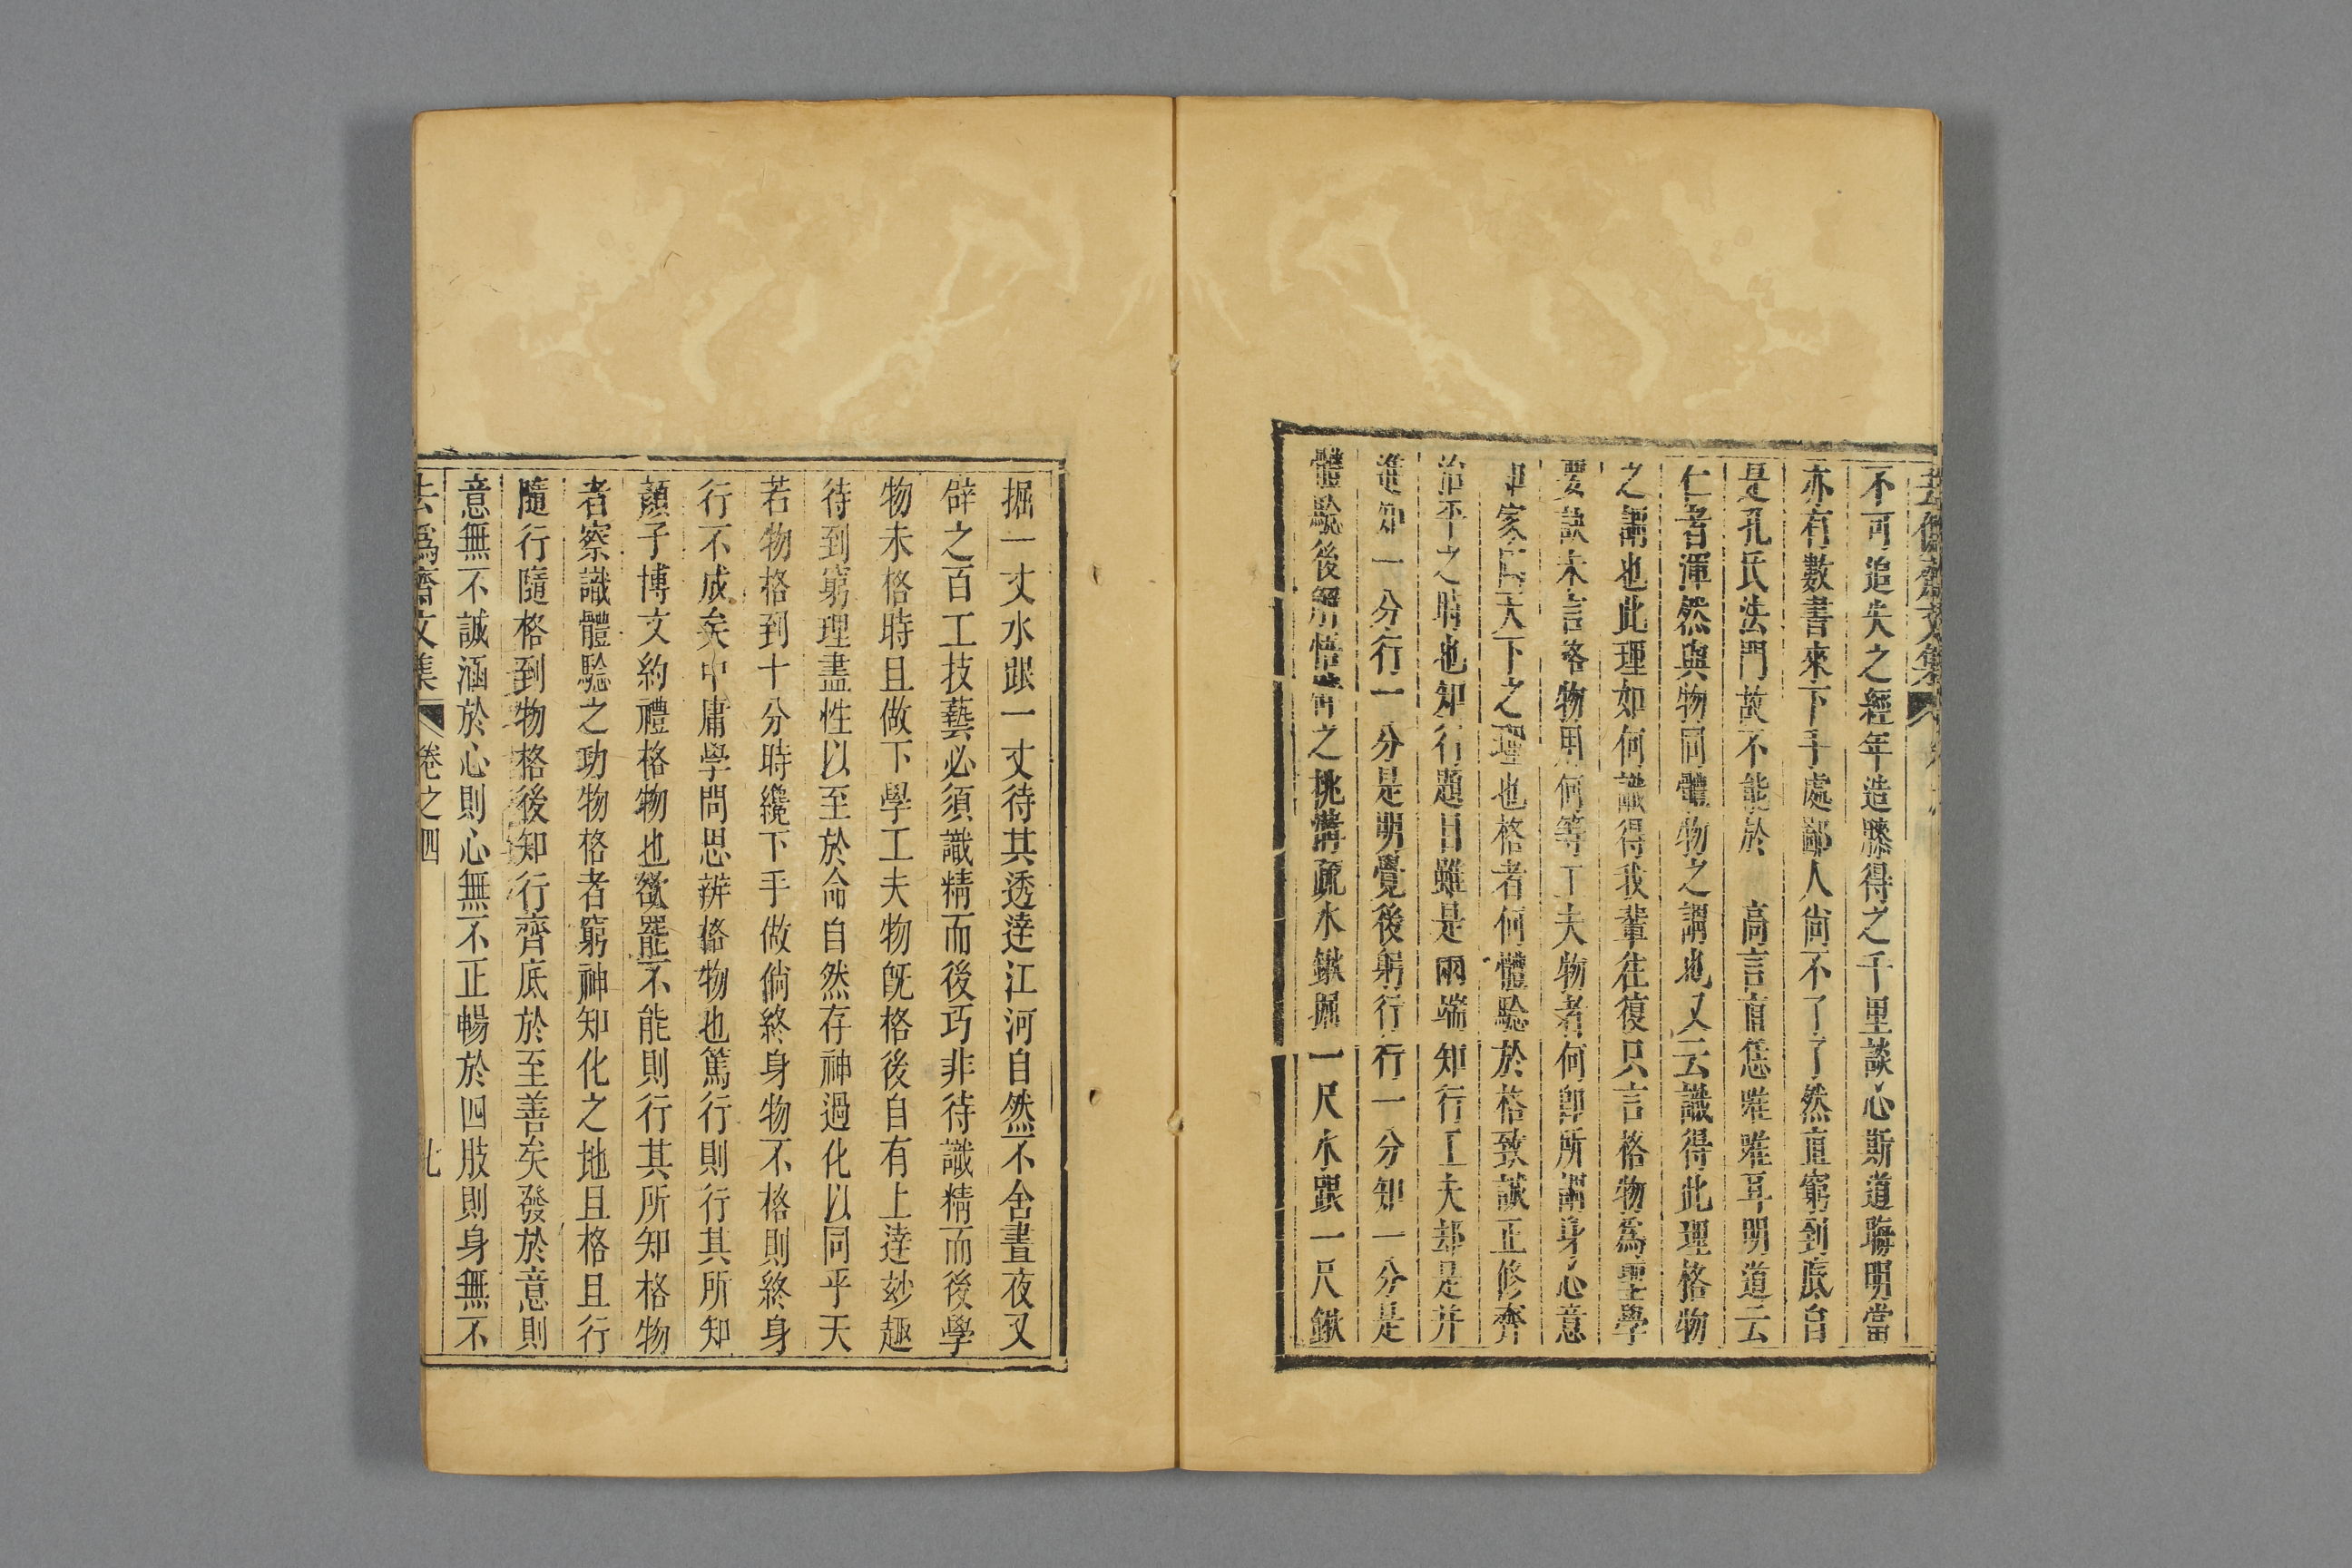 不可追失之經年造膝得之千里談心斯道晦明當
亦有數書來下手處鄙人尙不了了然直窮到底自
是孔氏法門故不能於 高言直恁唯唯耳明道云
仁者渾然與物同體物之謂也又云識得此理格物
之謂也此理如何識得我輩往復只言格物爲聖學
要訣未言格物用何等工夫物者何卽所謂身心意
家 天下之理也格者何體驗於格致誠正修齊
治平之時也知行題目雖是兩端知行工夫却是并
進知一分行一分是明覺後躬行行一分知一分是
體驗後解悟譬之挑溝疏水鍬掘一尺水跟一尺鍬
掘一丈水跟一丈待其透達江河自然不舍晝夜又
辟之百工技藝必須識精而後巧非待識精而後學
物未格時且做下學工夫物旣格後自有上達妙趣
待到窮理盡性以至於命自然存神過化以同乎天
若物格到十分時纔下手做倘終身物不格則終身
行不成矣中庸學問思辨格物也篤行則行其所知
顏子博文約禮格物也欲罷不能則行其所知格物
者察識體驗之功物格者窮神知化之地且格且行
隨行隨格到物格後知行齊底於至善矣發於意則
意無不誠涵於心則心無不正暢於四肢則身無不
去僞齋文集 卷之四